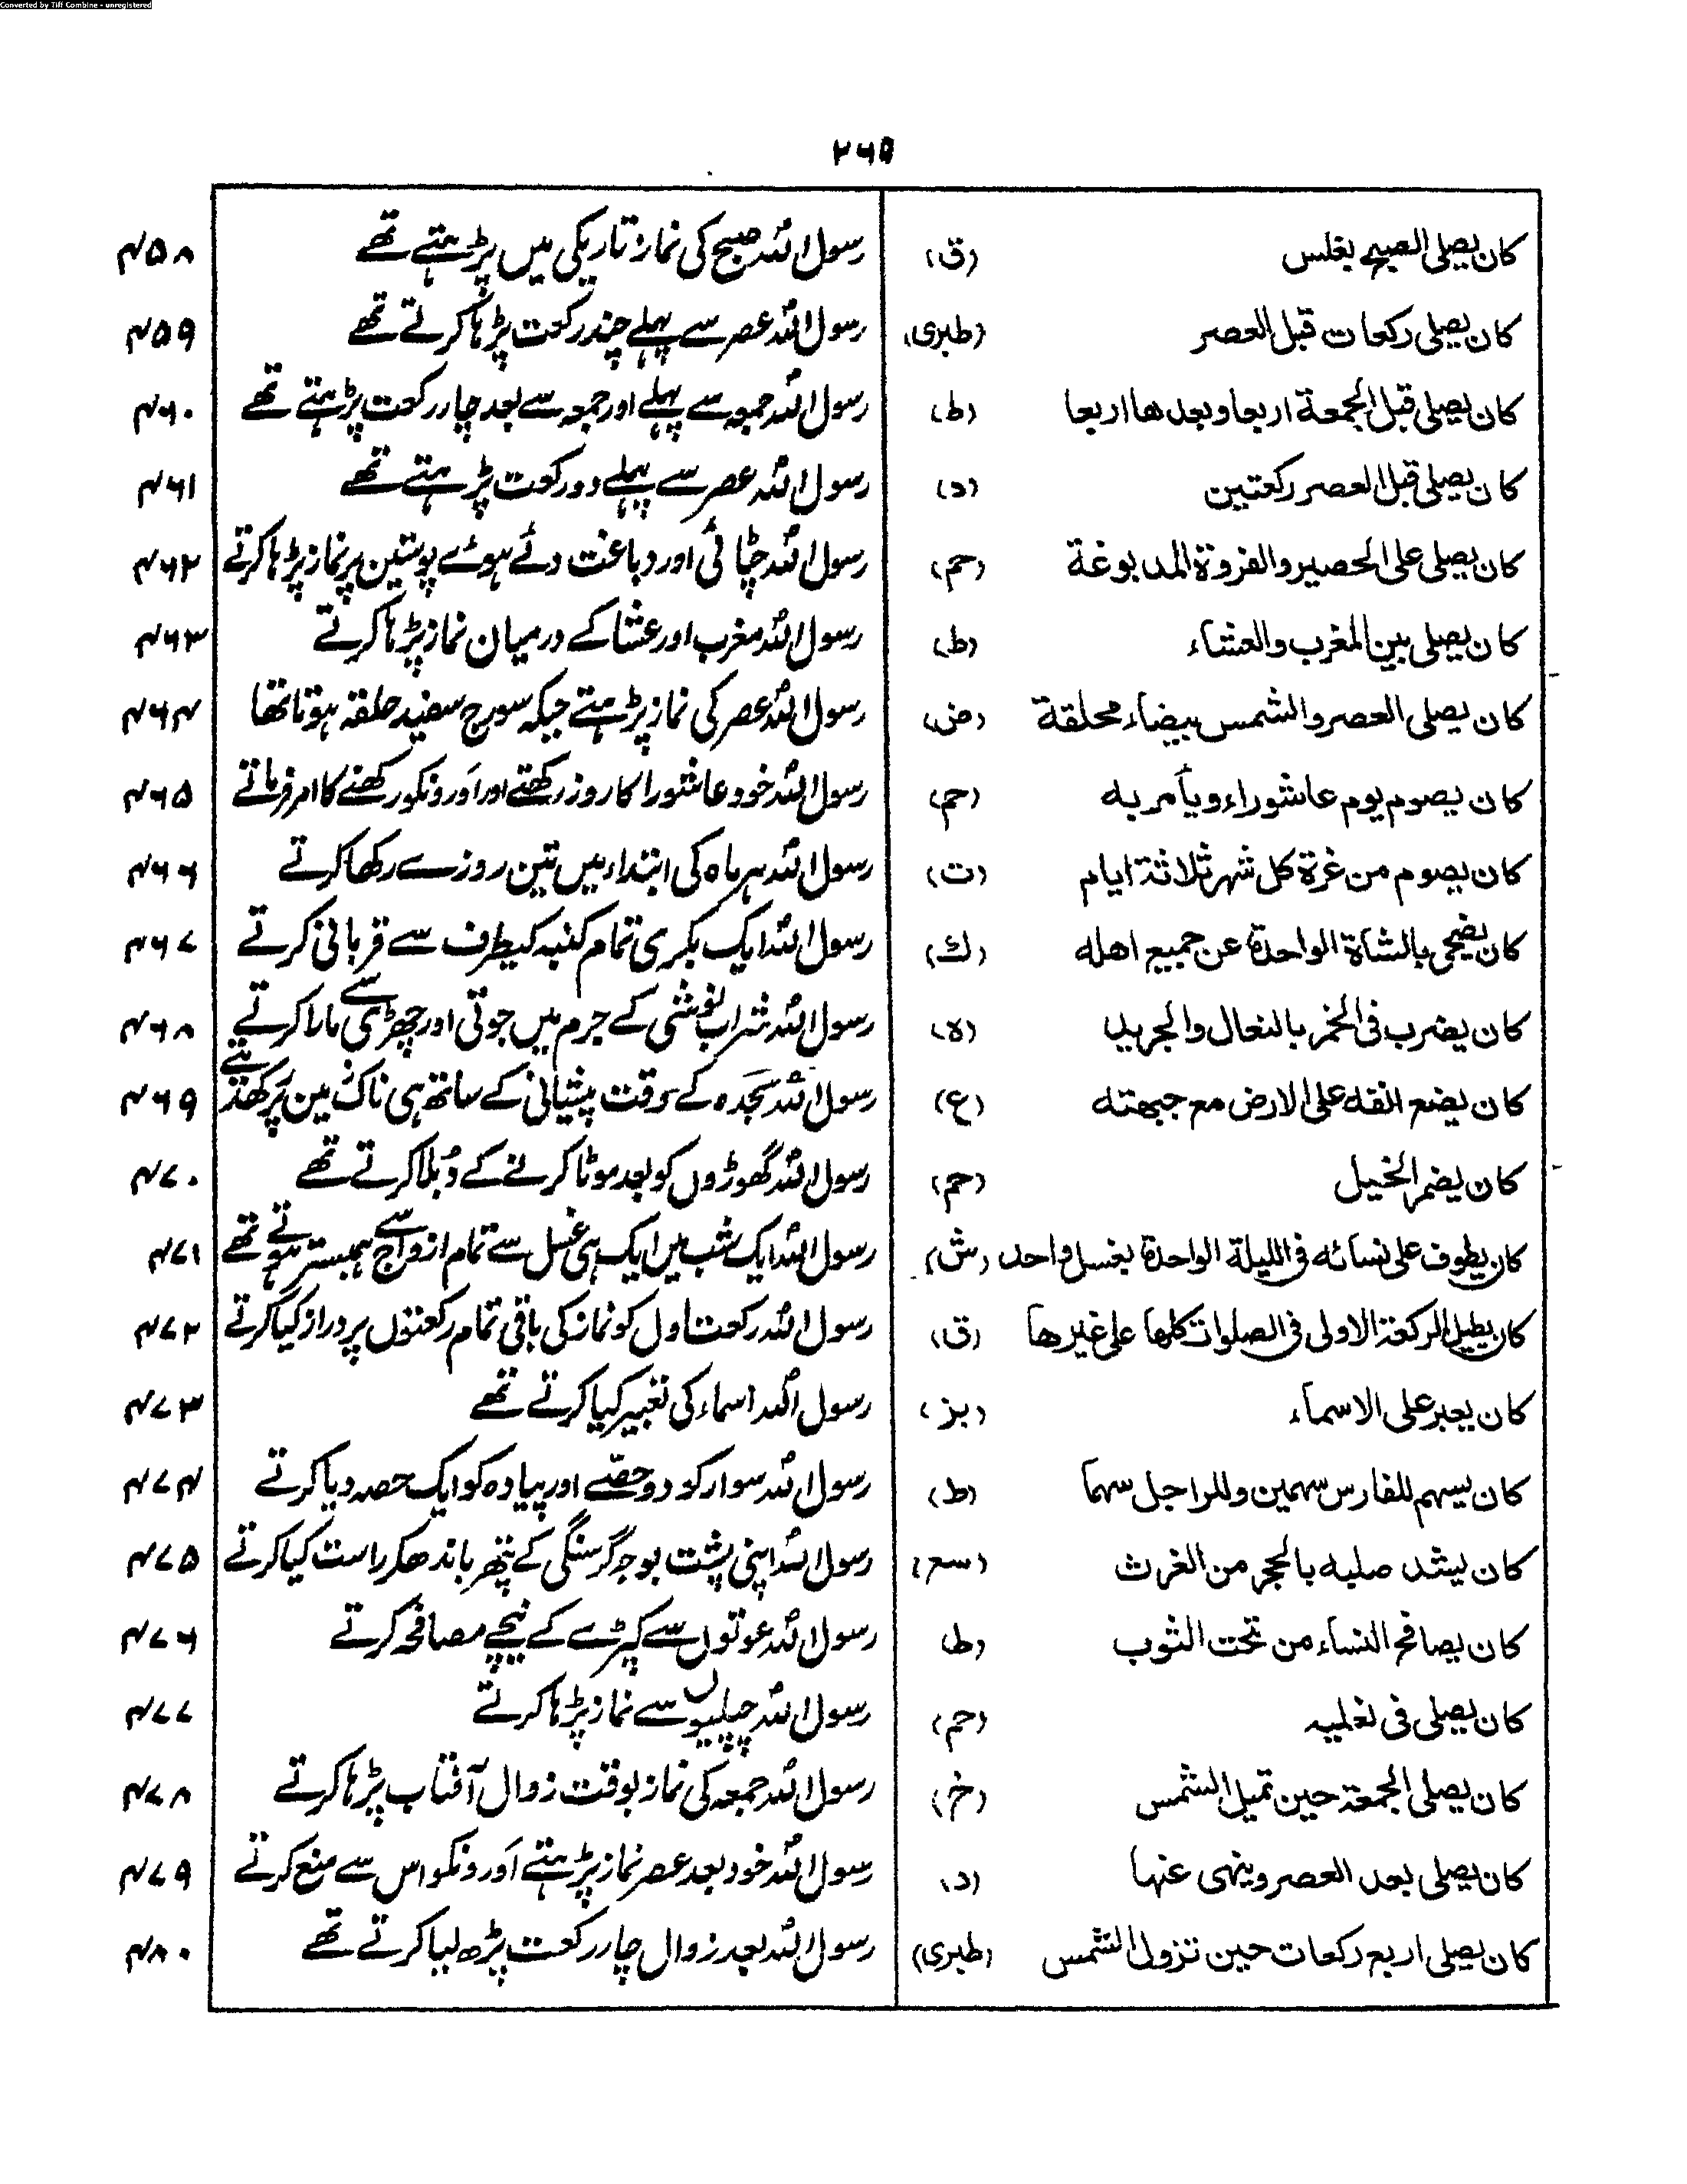 Converted by Tiff Combine - unregistered
۲۶۹
کان یصلی الصبح بغلس (ق) رسول اللہ صبح کی نماز تاریکی میں پڑہتے تھے ۴۵۸
کان یصلی رکعات قبل العصر (طبری) رسول اللہ عصر سے پہلے چند رکعت پڑہا کرتے تھے ۴۵۹
کان یصلی قبل الجمعة اربعا وبعدها اربعا (ط) رسول اللہ جمعہ سے پہلے اور جمعہ سے بعد چار رکعت پڑہتے تھے ۴۶۰
کان یصلی قبل العصر رکعتین (د) رسول اللہ عصر سے پہلے دو رکعت پڑہتے تھے ۴۶۱
کان یصلی علی الحصیر والفروة المدبوغة (حم) رسول اللہ چٹائی اور دباغت دئے ہوئے پوستین پر نماز پڑہا کرتے ۴۶۲
کان یصلی بین المغرب والعشاء (ط) رسول اللہ مغرب اور عشا کے درمیان نماز پڑہا کرتے ۴۶۳
کان یصلی العصر والشمس بیضاء محلقة (ض) رسول اللہ عصر کی نماز پڑہتے جبکہ سورج سفید حلقہ ہوتا تھا ۴۶۴
کان یصوم یوم عاشوراء ویأمر به (حم) رسول اللہ خود عاشورا کا روز رکھتے اور اَورونکو رکھنے کا امر فرماتے ۴۶۵
کان یصوم من غرة کل شهر ثلاثة ایام (ت) رسول اللہ ہر ماہ کی ابتداء میں تین روزے رکھا کرتے ۴۶۶
کان یضحی بالشاة الواحدة عن جمیع اهله (ك) رسول اللہ ایک بکری تمام کنبہ کیطرف سے قربانی کرتے ۴۶۷
کان یضرب فی الخمر بالنعال والجرید (ه) رسول اللہ شراب نوشی کے جرم میں جوتی اور چھڑی سے مارا کرتے ۴۶۸
کان یضع انفه علی الارض مع جبهته (ع) رسول اللہ سجدہ کے وقت پیشانی کے ساتھ ہی ناک زمین پر رکھتے تھے ۴۶۹
کان یضمر الخیل (حم) رسول اللہ گھوڑوں کو بعد موٹا کرنے کے دُبلا کرتے تھے ۴۷۰
کان یطوف علی نسائه فی اللیلة الواحدة بغسل واحد (ش) رسول اللہ ایک شب میں ایک ہی غسل سے تمام ازواج سے ہمبستر ہوتے تھے ۴۷۱
کان یطیل الرکعة الاولی فی الصلوات کلها علی غیرها (ق) رسول اللہ رکعت اول کو نماز کی باقی تمام رکعتوں پر دراز کیا کرتے ۴۷۲
کان یعبر علی الاسماء (بز) رسول اللہ اسماء کی تعبیر کیا کرتے تھے ۴۷۳
کان یسهم للفارس سهمین وللراجل سهما (ط) رسول اللہ سوار کو دو حصّے اور پیادہ کو ایک حصہ دیا کرتے ۴۷۴
کان یشد صلبه بالحجر من الغرث (سع) رسول اللہ اپنی پشت بوجہ گرسنگی کے پتھر باندھکر راست کیا کرتے ۴۷۵
کان یصافح النساء من تحت الثوب (ط) رسول اللہ عوتوں سے کپڑے کے نیچے مصافحہ کرتے ۴۷۶
کان یصلی فی نعلیه (حم) رسول اللہ چپلیوں سے نماز پڑہا کرتے ۴۷۷
کان یصلی الجمعة حین تمیل الشمس (خ) رسول اللہ جمعہ کی نماز بوقت زوال آفتاب پڑہا کرتے ۴۷۸
کان یصلی بعد العصر وینهی عنها (د) رسول اللہ خود بعد عصر نماز پڑہتے اَورونکو اس سے منع کرتے ۴۷۹
کان یصلی اربع رکعات حین تزول الشمس (طبری) رسول اللہ بعد زوال چار رکعت پڑھ لیا کرتے تھے ۴۸۰